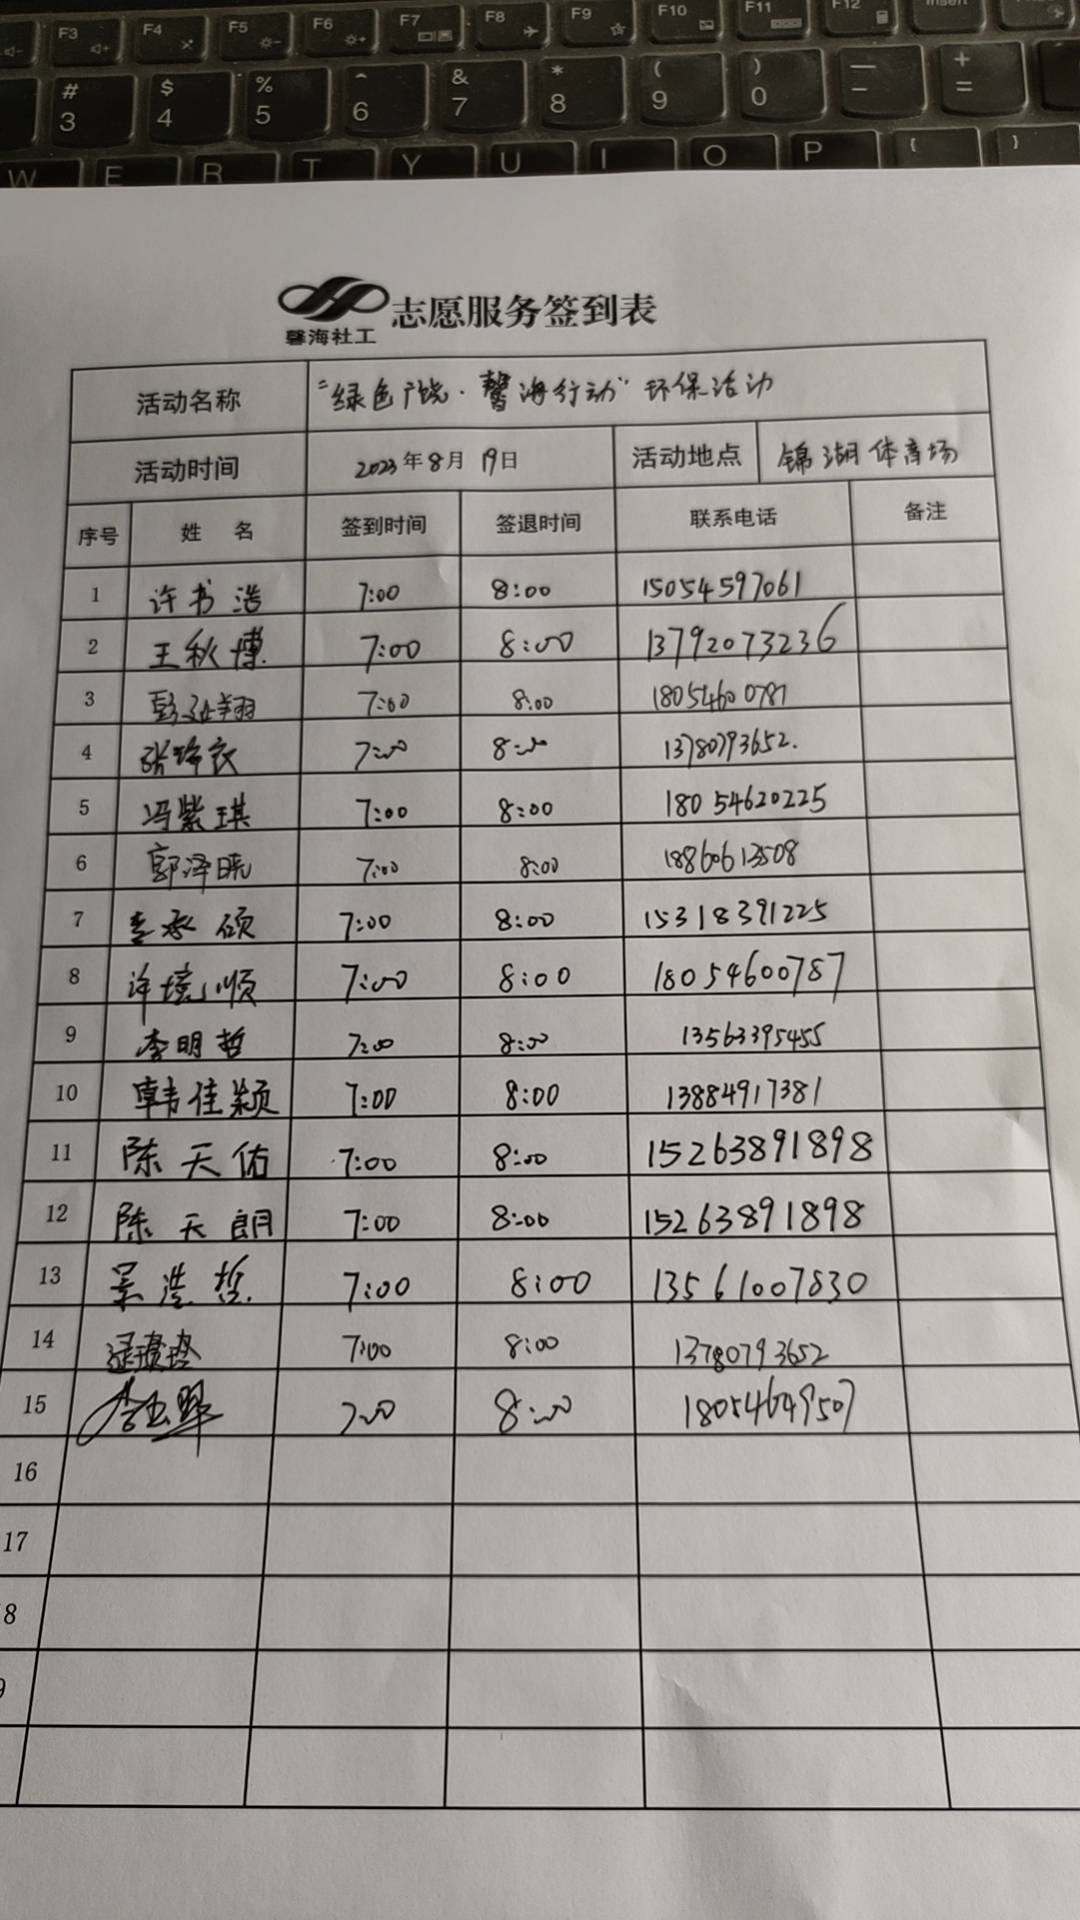 F3 F4 F5 F6 F7 F8 F9 F10 F11 F12 Insert
# $ % ^ & * ( ) — +
3 4 5 6 7 8 9 0 - =
W E R T Y U I O P { }
馨海社工 志愿服务签到表
活动名称 “绿色广饶·馨海行动”环保活动
活动时间 2023年8月19日 活动地点 锦湖体育场
序号 姓 名 签到时间 签退时间 联系电话 备注
1 许书浩 7:00 8:00 15054597061
2 王秋博 7:00 8:00 13792073236
3 彭延翔 7:00 8:00 18054600787
4 张玮衣 7:00 8:00 13780793652.
5 冯紫琪 7:00 8:00 18054620225
6 郭泽晓 7:00 8:00 18860613508
7 李承硕 7:00 8:00 15318391225
8 许境顺 7:00 8:00 18054600787
9 李明哲 7:00 8:00 13563395455
10 韩佳颖 7:00 8:00 13884917381
11 陈天佑 7:00 8:00 15263891898
12 陈天朗 7:00 8:00 15263891898
13 景浩哲 7:00 8:00 13561007830
14 7:00 8:00 13780793652
15 7:00 8:00 18054649507
16
17
8
9